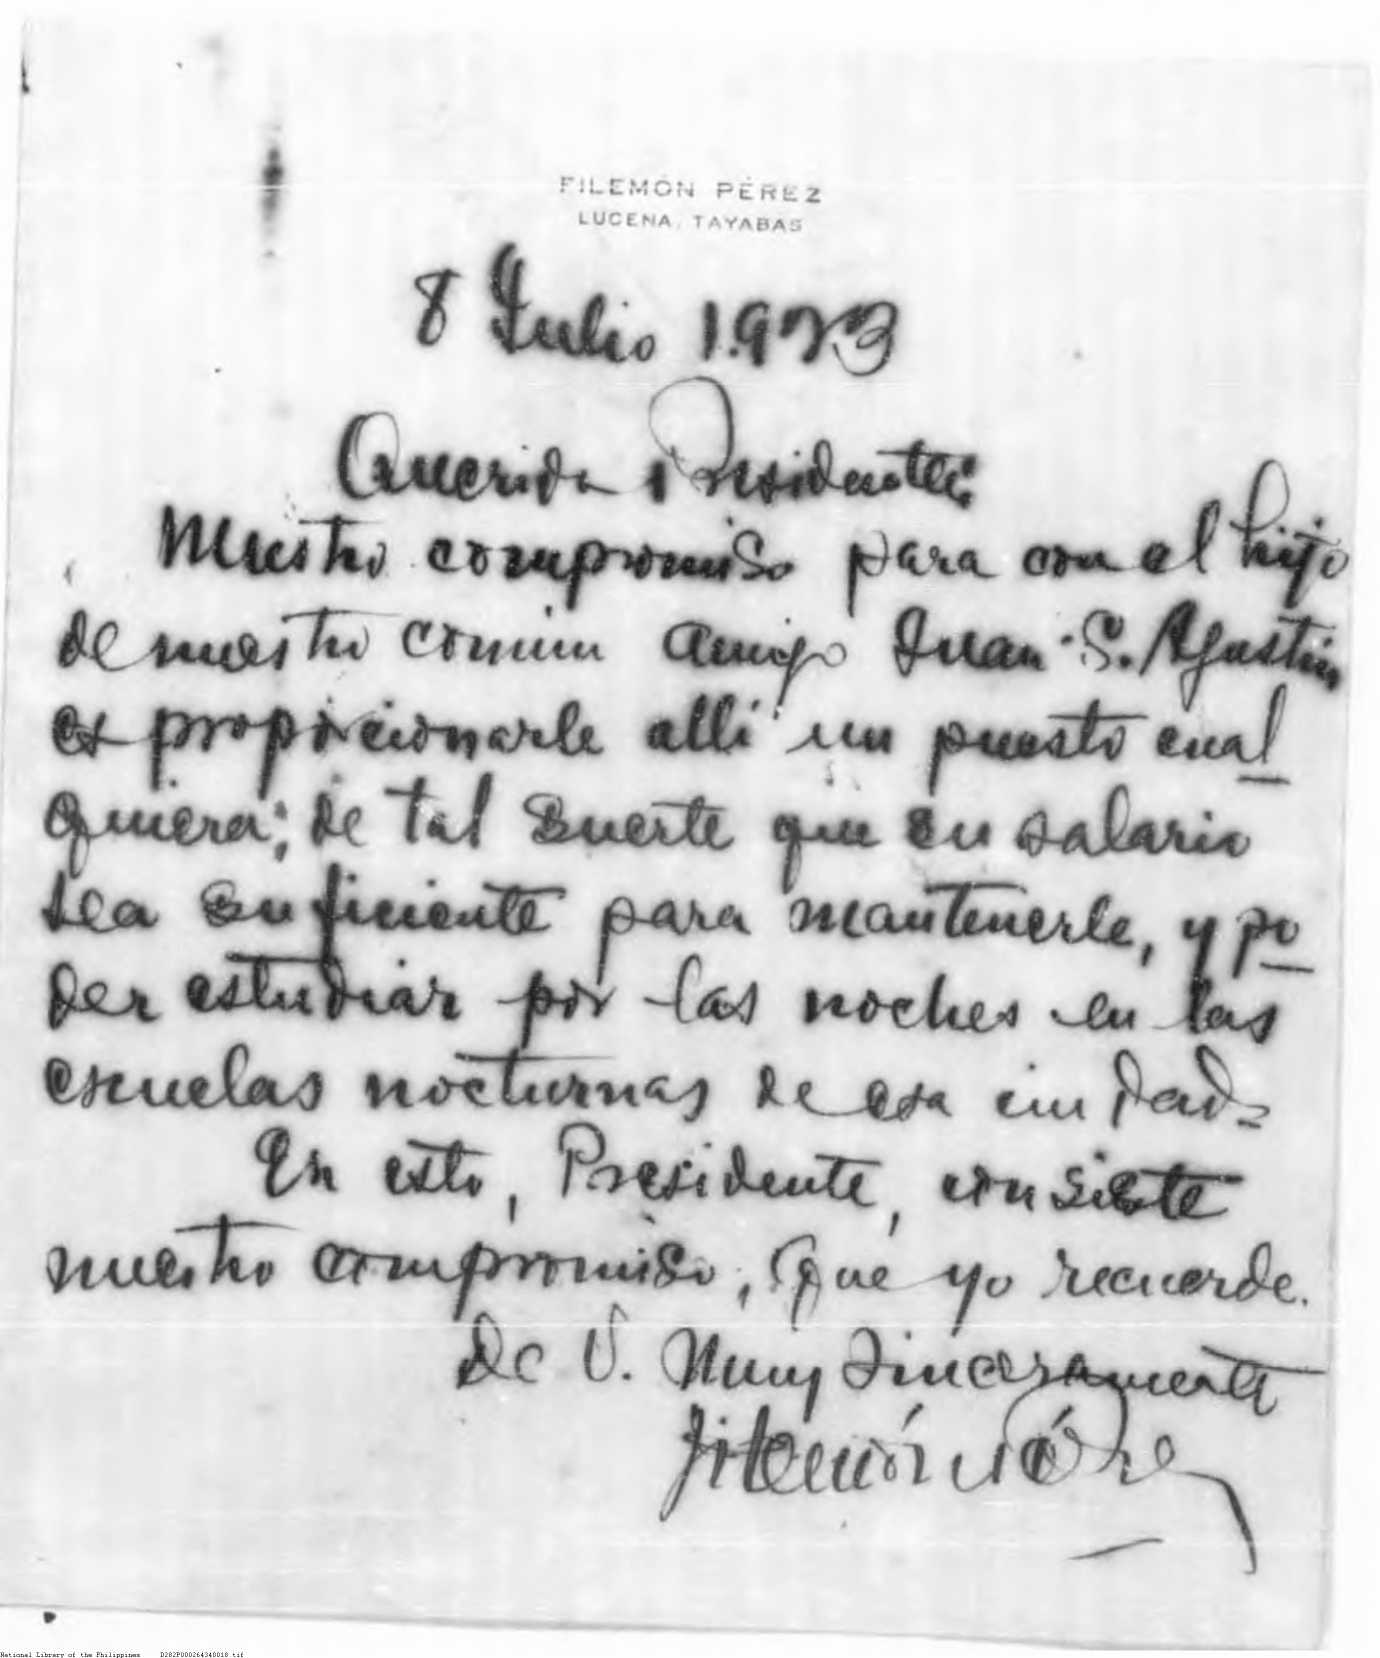 FILEMÓN PÉREZ
LUCENA, TAYABAS
8 Julio 1.923
Querido Presidente:
Nuestro compromiso para con el hijo
de nuestro común amigo Juan S. Agustin
es proporcionarle allí un puesto cual
quiera; de tal suerte que su salario
sea suficiente para mantenerle, y po
der estudiar por las noches en las
escuelas nocturnas de esa ciudad=
En esto, Presidente, consiste
nuestro compromiso, que yo recuerde.
De V. Muy sinceramente
Filemón Pérez
National Library of the Philippines D282P000264340018.tif